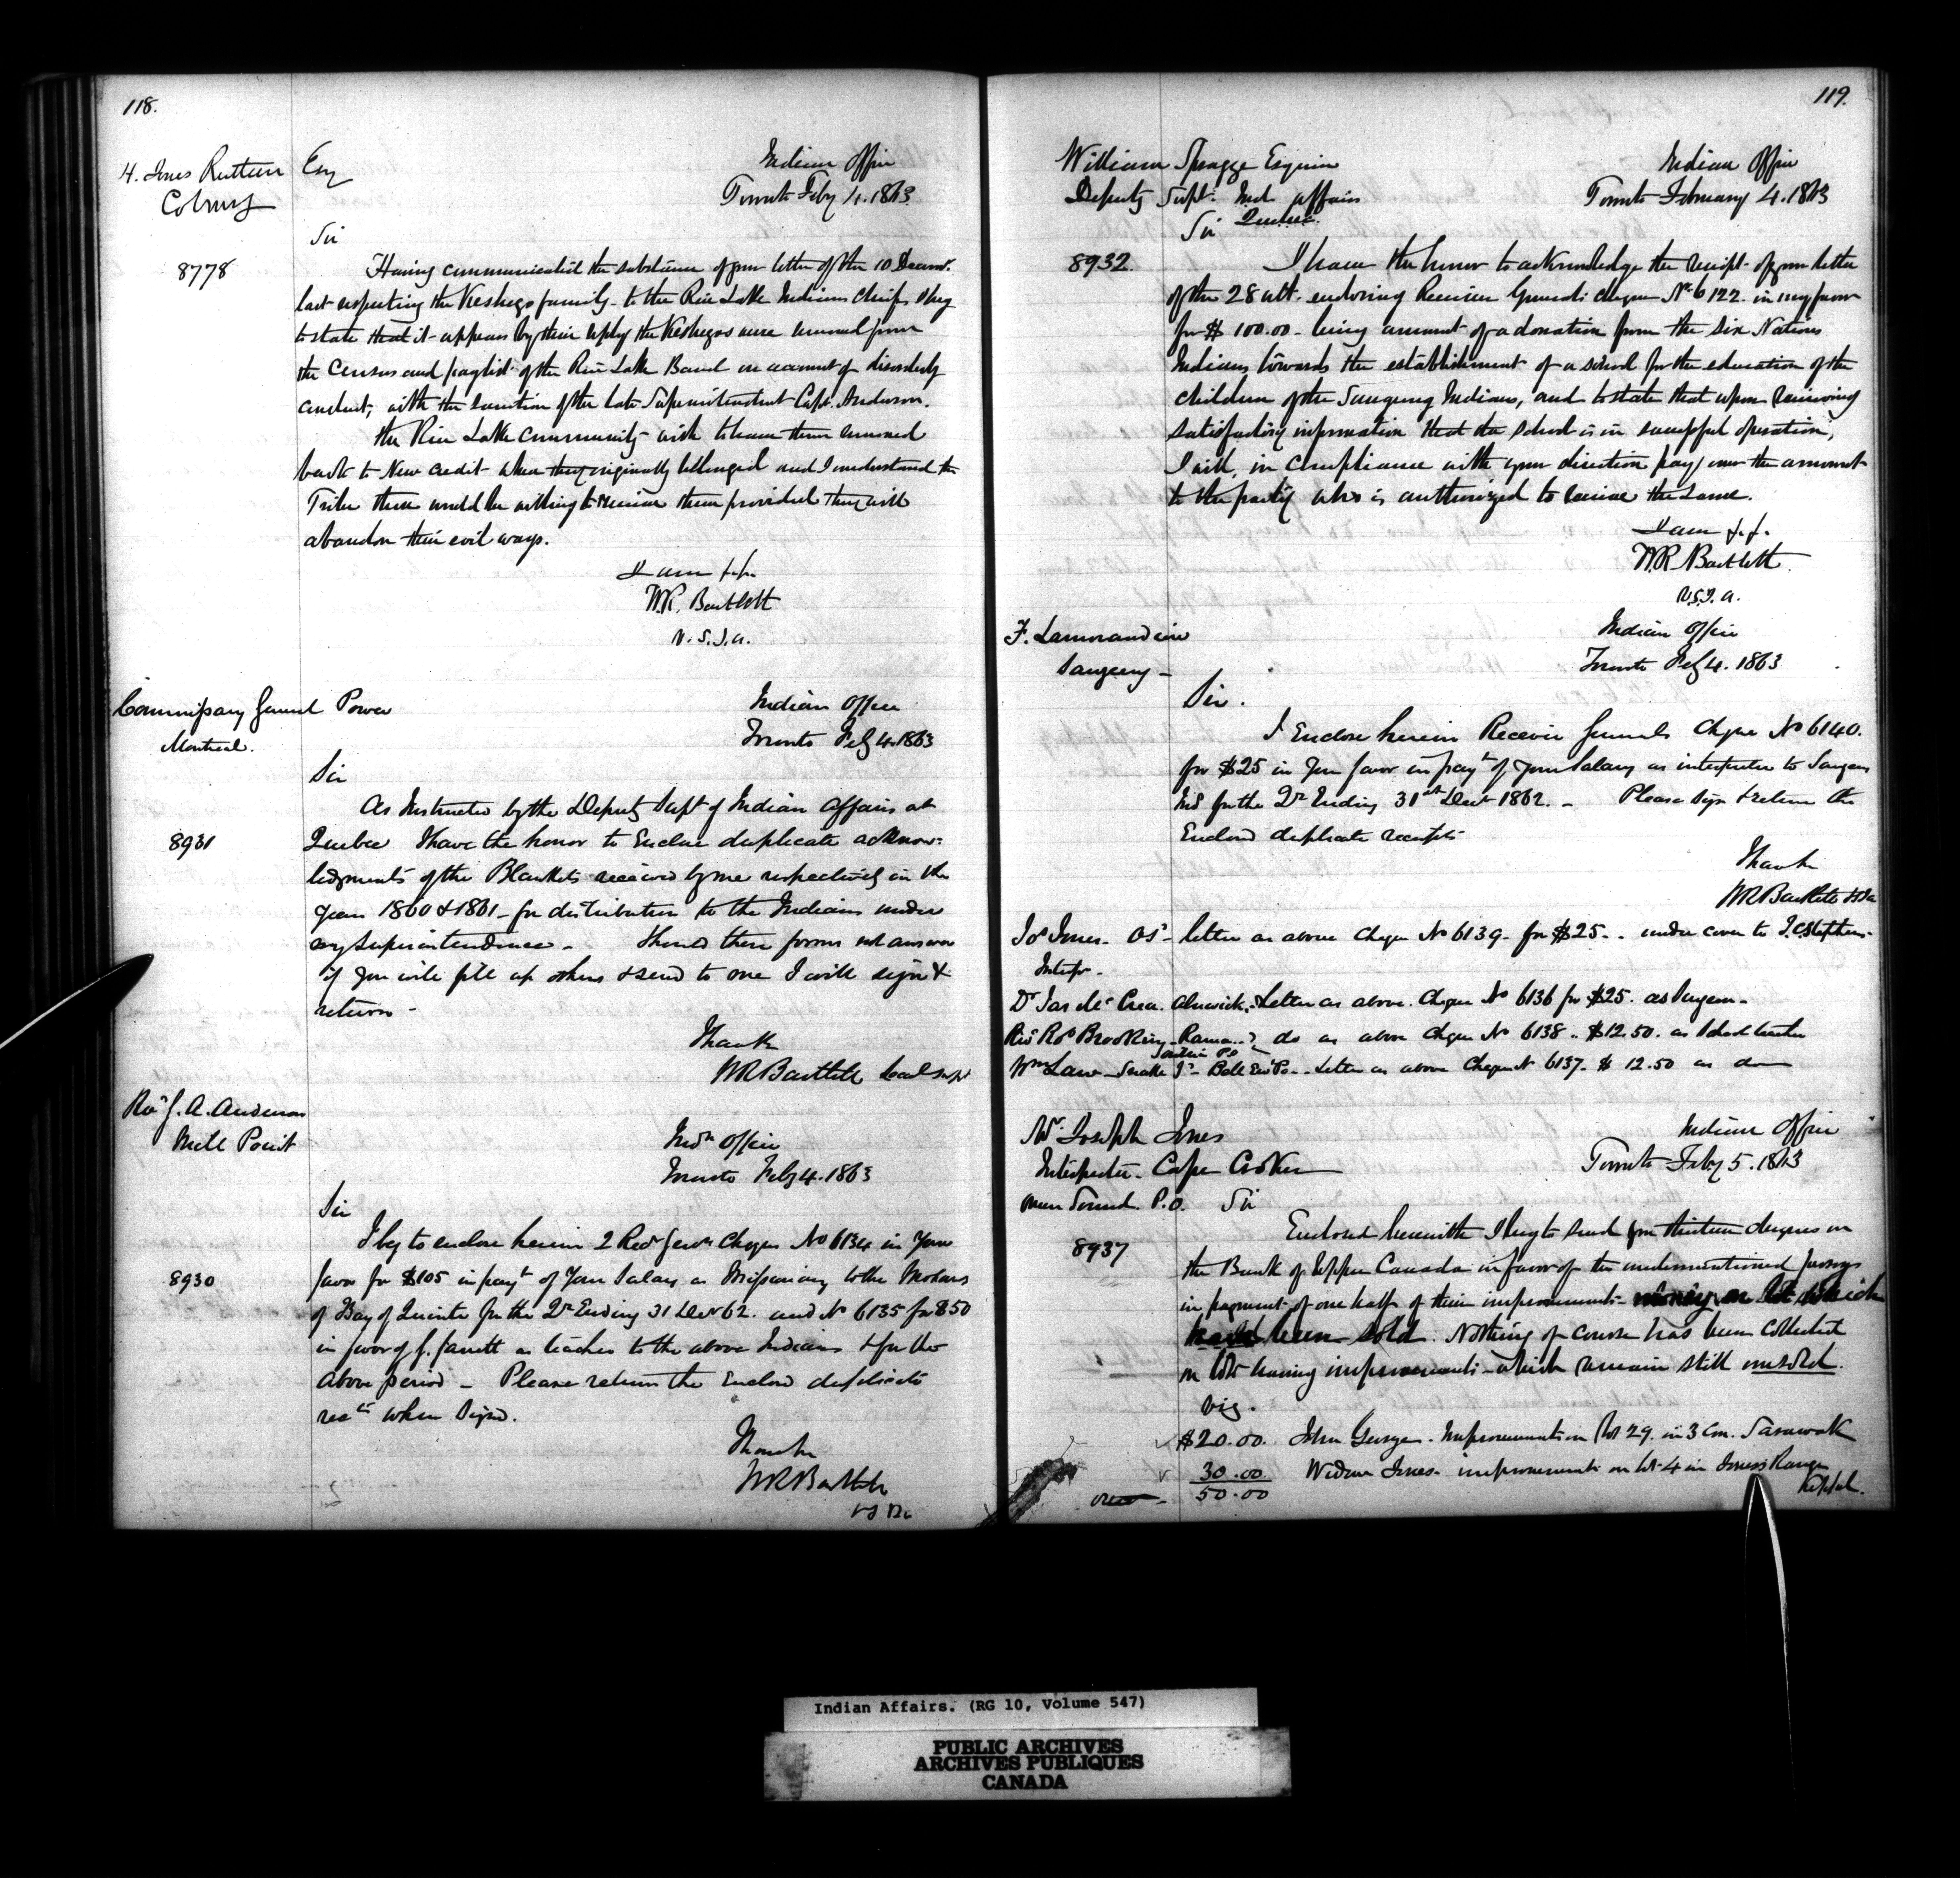 118.
H. Jones Ruttan Esq
Cobourg
Indian Office
Toronto Feby 4. 1863
Sir
8778
Having communicated the substance of your letter of the 10 Decemr.
last respecting the Keshego family to the Rice Lake Indians Chiefs I beg
to state that it appears by their reply the Keshegos were removed from
the Census and paylist of the Rice Lake Band on account of disorderly
conduct, with the sanction of the late Superintendent Capt. Anderson.
the Rice Lake community wish to have them removed
back to New Credit where they originally belonged and I understand the
Tribe there would be willing to receive them provided they will
abandon their evil ways.
I am &c.
W.R. Bartlett
V.S.I.A.
Commissary General Power
Montreal.
Indian Office
Toronto Feby 4. 1863
Sir
8931
As Instructed by the Deputy Supt of Indian Affairs at
Quebec I have the honor to Enclose duplicate acknow-
ledgments of the Blankets received by me respectively in the
years 1860 & 1861 - for distribution to the Indians under
my Superintendence - Should these forms not answer
if you will fill up others & send to me I will sign &
return -
I have &c
WR Bartlett
Revd J. A. Anderson
Mill Point
Indn Office
Toronto Feby 4. 1863
Sir
8930
I beg to enclose herein 2 Recr Genls Cheques No 6134 in Your
favor for $105 in payt of Your Salary as Missionary to the Mohawks
of Bay of Quinte for the Qr Ending 31 Decr 62. and No 6135 for $50
in favor of J. Jarrett as teacher to the above Indians & for the
above period - Please return the Enclosed duplicate
recpts when Signed.
I have &c
WR Bartlett
119.
William Spragge Esquire
Deputy Supt. Ind. Affairs
Quebec.
Indian Office
Toronto February 4. 1863
Sir
8932
I have the honor to acknowledge the receipt of your letter
of the 28 ult. enclosing Receiver Generals cheque No. 6122 in my favor
for $100.00 being amount of a donation from the Six Nations
Indians towards the establishment of a school for the education of the
children of the Saugeeng Indians, and to state that upon receiving
satisfactory information that the school is in successful operation,
I will, in compliance with your direction pay over the amount
to the party who is authorized to receive the same.
I am &c.
W.R Bartlett.
V.S.I.A.
F. Lamorandiere
Saugeeng -
Indian Office
Toronto Feby 4. 1863
Sir.
I Enclose herein Receiver Generals Cheque No 6140.
for $25 in Your favor in payt of your Salary as interpreter to Saugeen
Inds for the Qr Ending 31st Decr 1862. - Please Sign & return the
Enclosed duplicate receipts
I have &c
WR Bartlett
Jos Jones - OS - letter as above Cheque No 6139 - for $25 - under cover to J.C Stephens
Interpr -
Dr Jas Mc Crea. Alnwick, Letter as above. Cheque No 6136 for $25. as Surgeon -
Revd Rt Brooking - Rama - do as above Cheque No 6138 - $12.50. as School teacher
Wm Law - Snake Id - Bell Ew PO - Letter as above Cheque No 6137 - $12.50 as do
Mr. Joseph Jones
Interpreter - Cape Croker
Owen Sound P.O.
Indian Office
Toronto Feby 5. 1863
Sir
8937
Enclosed herewith I beg to send you thirteen cheques on
the Bank of Upper Canada in favor of the undermentioned persons
in payment of one half of their improvements money on lots which
have been sold. Nothing of course has been collected
on lots having improvements which remain still unsold.
viz.
$20.00 John George. Improvements on Lot 29. in 3 Con. Sarawak
30.00 Widow Jones. improvements on lot 4 in Jones's Range
Keppel.
over - 50.00
Indian Affairs. (RG 10, Volume 547)
PUBLIC ARCHIVES
ARCHIVES PUBLIQUES
CANADA